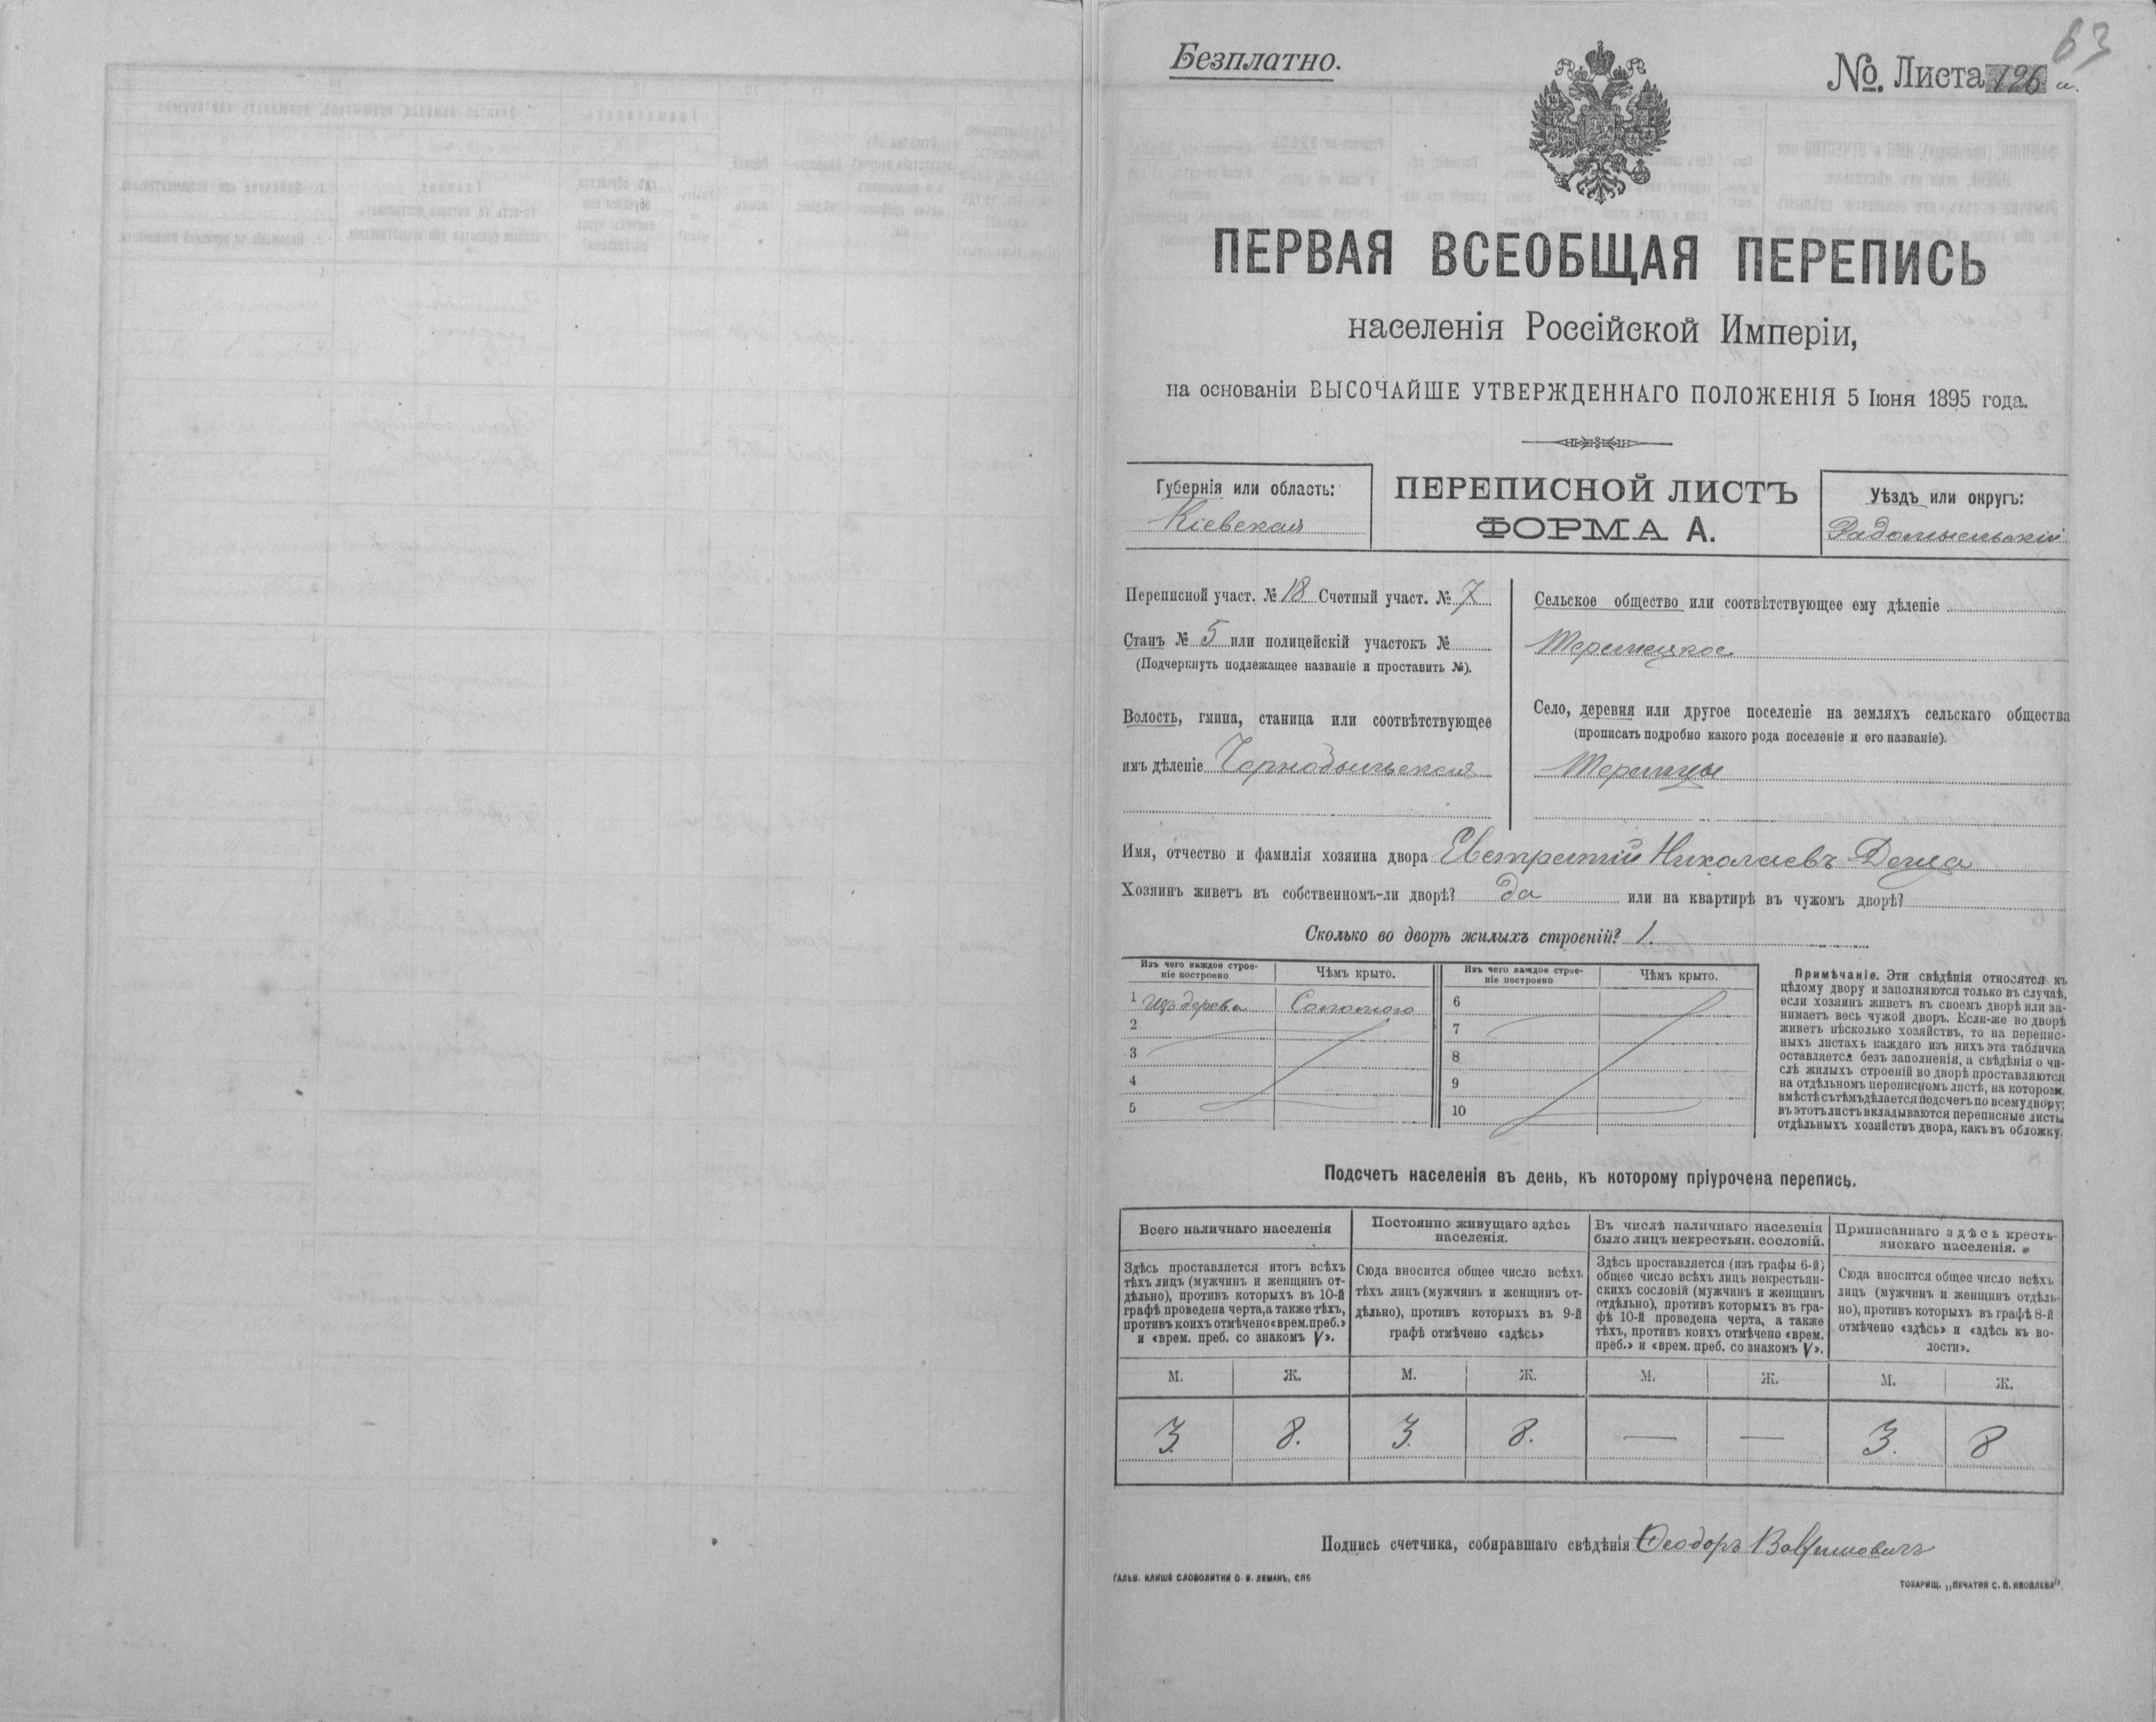 63
Безплатно.
№. Листа 126 а.
ПЕРВАЯ ВСЕОБЩАЯ ПЕРЕПИСЬ
населенія Россійской Имперіи,
на основаніи ВЫСОЧАЙШЕ УТВЕРЖДЕННАГО ПОЛОЖЕНІЯ 5 Іюня 1895 года.
Губернія или область:
Кіевская
ПЕРЕПИСНОЙ ЛИСТЪ
ФОРМА А.
Уѣздъ или округъ:
Радомысльскій
Переписной участ. № 18 Счетный участ. № 7
Станъ № 5 или полицейскій участокъ №
(Подчеркнуть подлежащее названіе и проставить №).
Волость, гмина, станица или соотвѣтствующее
имъ дѣленіе Чернобыльская
Сельское общество или соотвѣтствующее ему дѣленіе
Теремецкое
Село, деревня или другое поселеніе на земляхъ сельскаго общества
(прописать подробно какого рода поселеніе и его названіе).
Теремцы
Имя, отчество и фамилія хозяина двора Евстратій Николаевъ
Хозяинъ живетъ въ собственномъ-ли дворѣ? да или на квартирѣ въ чужомъ дворѣ?
Сколько во дворѣ жилыхъ строеній? 1.
Изъ чего каждое строе-
ніе построено
Чѣмъ крыто.
Изъ чего каждое строе-
ніе построено
Чѣмъ крыто.
1 Изъ дерева Соломою 6
2 7
3 8
4 9
5 10
Примѣчаніе. Эти свѣдѣнія относятся къ
цѣлому двору и заполняются только въ случаѣ,
если хозяинъ живетъ въ своемъ дворѣ или за-
нимаетъ весь чужой дворъ. Если-же во дворѣ
живетъ нѣсколько хозяйствъ, то на перепис-
ныхъ листахъ каждаго изъ нихъ эта табличка
оставляется безъ заполненія, а свѣдѣнія о чи-
слѣ жилыхъ строеній во дворѣ проставляются
на отдѣльномъ переписномъ листѣ, на которомъ
вмѣстѣ съ тѣмъ дѣлается подсчетъ по всему двору;
въ этотъ листъ вкладываются переписные листы
отдѣльныхъ хозяйствъ двора, какъ въ обложку.
Подсчетъ населенія въ день, къ которому пріурочена перепись.
Всего наличнаго населенія
Здѣсь проставляется итогъ всѣхъ
тѣхъ лицъ (мужчинъ и женщинъ от-
дѣльно), противъ которыхъ въ 10-й
графѣ проведена черта, а также тѣхъ,
противъ коихъ отмѣчено «врем. преб.»
и «врем. преб. со знакомъ V».
Постоянно живущаго здѣсь
населенія.
Сюда вносится общее число всѣхъ
тѣхъ лицъ (мужчинъ и женщинъ от-
дѣльно), противъ которыхъ въ 9-й
графѣ отмѣчено «здѣсь»
Въ числѣ наличнаго населенія
было лицъ некрестьян. сословій.
Здѣсь проставляется (изъ графы 6-й)
общее число всѣхъ лицъ некрестьян-
скихъ сословій (мужчинъ и женщинъ
отдѣльно), противъ которыхъ въ гра-
фѣ 10-й проведена черта, а также
тѣхъ, противъ коихъ отмѣчено «врем.
преб.» и «врем. преб. со знакомъ V».
Приписаннаго здѣсь кресть-
янскаго населенія.
Сюда вносится общее число всѣхъ
лицъ (мужчинъ и женщинъ отдѣль-
но), противъ которыхъ въ графѣ 8-й
отмѣчено «здѣсь» и «здѣсь къ во-
лости».
М. Ж. М. Ж. М. Ж. М. Ж.
3. 8. 3. 8. — — 3. 8
Подпись счетчика, собиравшаго свѣдѣнія Ѳеодоръ
ГАЛЬВ. КЛИШЕ СЛОВОЛИТНИ О. И. ЛЕМАНЪ, СПБ
ТОВАРИЩ. „ПЕЧАТНЯ С. П. ЯКОВЛЕВА"